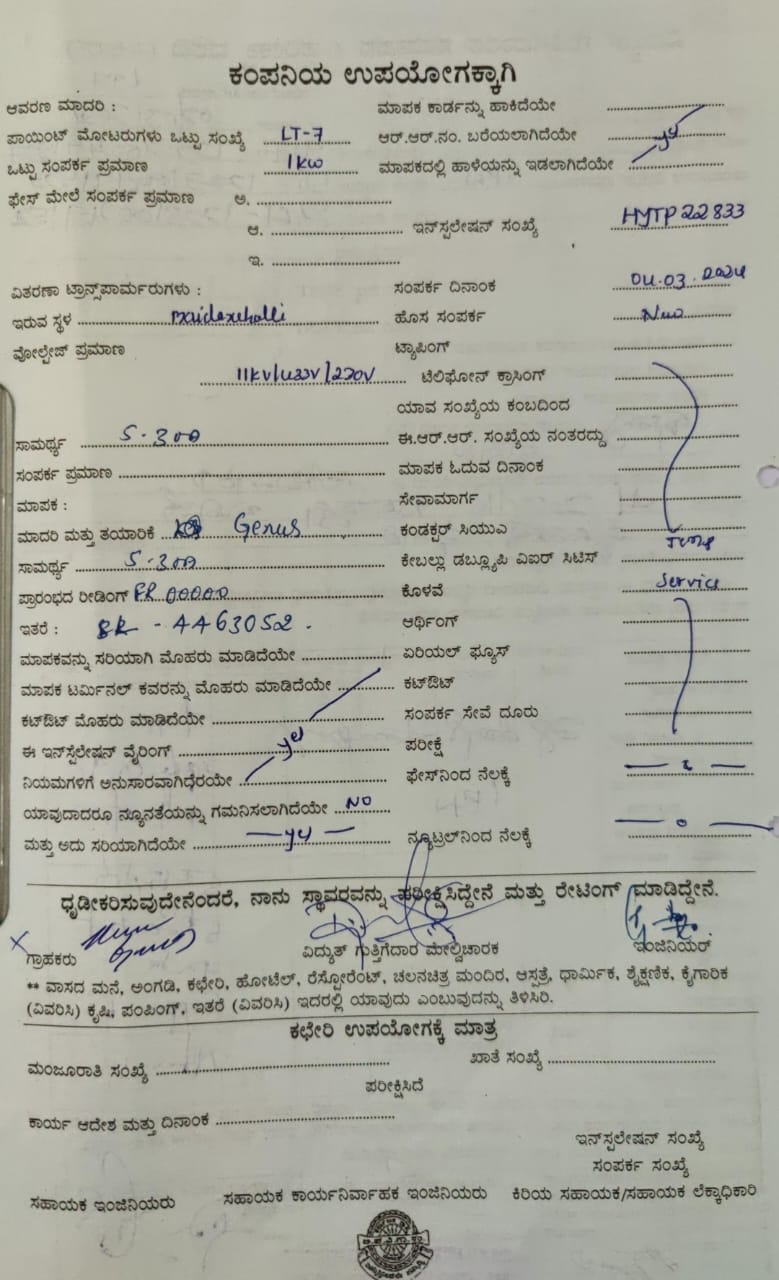 ಕಂಪನಿಯ ಉಪಯೋಗಕ್ಕಾಗಿ
ಆವರಣ ಮಾದರಿ : ಮಾಪಕ ಕಾರ್ಡನ್ನು ಹಾಕಿದೆಯೇ
ಪಾಯಿಂಟ್ ಮೋಟರುಗಳು ಒಟ್ಟು ಸಂಖ್ಯೆ LT-7 ಆರ್.ಆರ್.ನಂ. ಬರೆಯಲಾಗಿದೆಯೇ
ಒಟ್ಟು ಸಂಪರ್ಕ ಪ್ರಮಾಣ 1kw ಮಾಪಕದಲ್ಲಿ ಹಾಳೆಯನ್ನು ಇಡಲಾಗಿದೆಯೇ
ಫೇಸ್ ಮೇಲೆ ಸಂಪರ್ಕ ಪ್ರಮಾಣ ಅ.
ಆ. ಇನ್‌ಸ್ಪಲೇಷನ್ ಸಂಖ್ಯೆ HYTP 22833
ಇ.
ವಿತರಣಾ ಟ್ರಾನ್ಸ್‌ಪಾರ್ಮರುಗಳು : ಸಂಪರ್ಕ ದಿನಾಂಕ 04.03.2024
ಇರುವ ಸ್ಥಳ ಹೊಸ ಸಂಪರ್ಕ
ವೋಲ್ಟೇಜ್ ಪ್ರಮಾಣ ಟ್ಯಾಪಿಂಗ್
11KV/433V/220V ಟೆಲಿಫೋನ್ ಕ್ರಾಸಿಂಗ್
ಯಾವ ಸಂಖ್ಯೆಯ ಕಂಬದಿಂದ
ಸಾಮರ್ಥ್ಯ 5-300 ಈ.ಆರ್.ಆರ್. ಸಂಖ್ಯೆಯ ನಂತರದ್ದು
ಸಂಪರ್ಕ ಪ್ರಮಾಣ ಮಾಪಕ ಓದುವ ದಿನಾಂಕ
ಮಾಪಕ : ಸೇವಾಮಾರ್ಗ
ಮಾದರಿ ಮತ್ತು ತಯಾರಿಕೆ Genus ಕಂಡಕ್ಟರ್ ಸಿಯುಎ
ಸಾಮರ್ಥ್ಯ 5-300 ಕೇಬಲ್ಲು ಡಬ್ಲ್ಯೂಪಿ ವಿಐರ್ ಸಿಟಿಸ್
ಪ್ರಾರಂಭದ ರೀಡಿಂಗ್ FR 00000 ಕೊಳವೆ Service
ಇತರೆ : - 4463052. ಆರ್ಥಿಂಗ್
ಮಾಪಕವನ್ನು ಸರಿಯಾಗಿ ಮೊಹರು ಮಾಡಿದೆಯೇ ಏರಿಯಲ್ ಫ್ಯೂಸ್
ಮಾಪಕ ಟರ್ಮಿನಲ್ ಕವರನ್ನು ಮೊಹರು ಮಾಡಿದೆಯೇ ಕಟ್‌ಔಟ್
ಕಟ್‌ಔಟ್ ಮೊಹರು ಮಾಡಿದೆಯೇ ಸಂಪರ್ಕ ಸೇವೆ ದೂರು
ಈ ಇನ್‌ಸ್ಪೆಲೇಷನ್ ವೈರಿಂಗ್ ಪರೀಕ್ಷೆ
ನಿಯಮಗಳಿಗೆ ಅನುಸಾರವಾಗಿದೆರಯೇ ಫೇಸ್‌ನಿಂದ ನೆಲಕ್ಕೆ
ಯಾವುದಾದರೂ ನ್ಯೂನತೆಯನ್ನು ಗಮನಿಸಲಾಗಿದೆಯೇ NO
ಮತ್ತು ಅದು ಸರಿಯಾಗಿದೆಯೇ ನ್ಯೂಟ್ರಲ್‌ನಿಂದ ನೆಲಕ್ಕೆ
ಧೃಡೀಕರಿಸುವುದೇನೆಂದರೆ, ನಾನು ಸ್ಥಾವರವನ್ನು ಪರೀಕ್ಷಿಸಿದ್ದೇನೆ ಮತ್ತು ರೇಟಿಂಗ್ ಮಾಡಿದ್ದೇನೆ.
ಗ್ರಾಹಕರು ವಿದ್ಯುತ್ ಗುತ್ತಿಗೆದಾರ ಮೇಲ್ವಿಚಾರಕ ಇಂಜಿನಿಯರ್
** ವಾಸದ ಮನೆ, ಅಂಗಡಿ, ಕಛೇರಿ, ಹೋಟೆಲ್, ರೆಸ್ಟೋರೆಂಟ್, ಚಲನಚಿತ್ರ ಮಂದಿರ, ಆಸ್ಪತ್ರೆ, ಧಾರ್ಮಿಕ, ಶೈಕ್ಷಣಿಕ, ಕೈಗಾರಿಕ
(ವಿವರಿಸಿ) ಕೃಷಿ, ಪಂಪಿಂಗ್, ಇತರೆ (ವಿವರಿಸಿ) ಇದರಲ್ಲಿ ಯಾವುದು ಎಂಬುವುದನ್ನು ತಿಳಿಸಿರಿ.
ಕಛೇರಿ ಉಪಯೋಗಕ್ಕೆ ಮಾತ್ರ
ಮಂಜೂರಾತಿ ಸಂಖ್ಯೆ ಖಾತೆ ಸಂಖ್ಯೆ
ಪರೀಕ್ಷಿಸಿದೆ
ಕಾರ್ಯ ಆದೇಶ ಮತ್ತು ದಿನಾಂಕ
ಇನ್‌ಸ್ಪಲೇಷನ್ ಸಂಖ್ಯೆ
ಸಂಪರ್ಕ ಸಂಖ್ಯೆ
ಸಹಾಯಕ ಇಂಜಿನಿಯರು ಸಹಾಯಕ ಕಾರ್ಯನಿರ್ವಾಹಕ ಇಂಜಿನಿಯರು ಕಿರಿಯ ಸಹಾಯಕ/ಸಹಾಯಕ ಲೆಕ್ಕಾಧಿಕಾರಿ